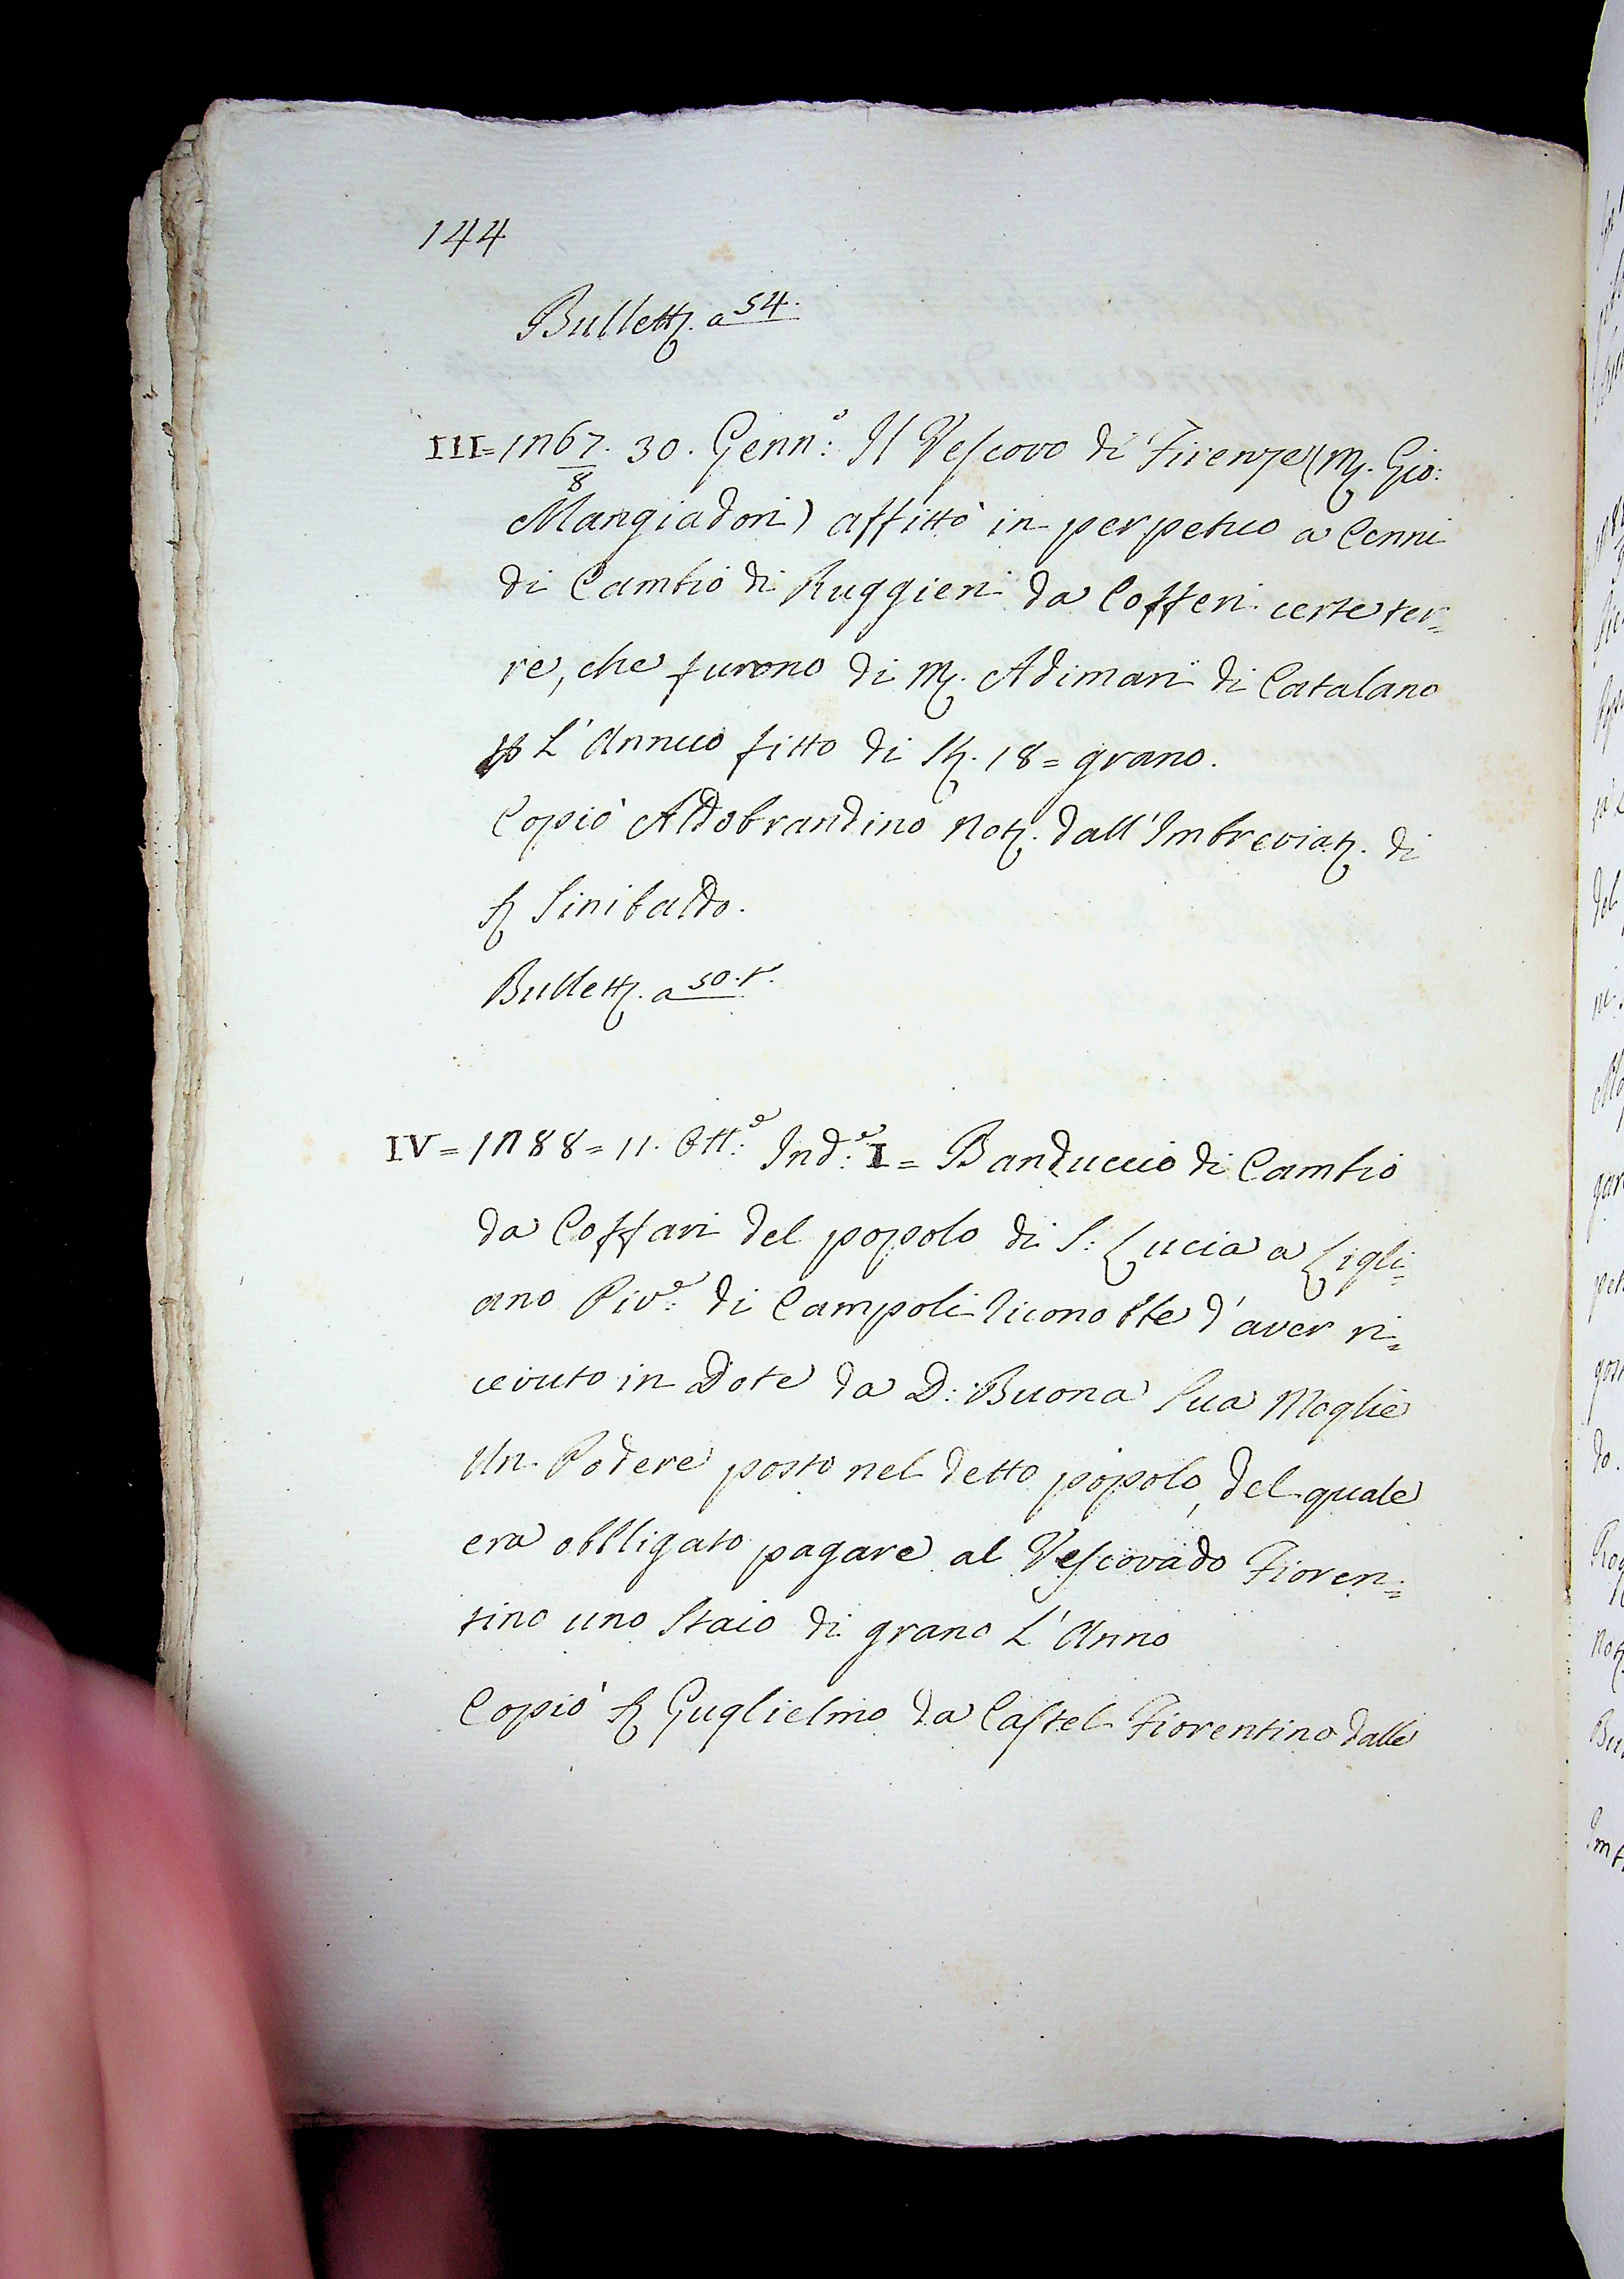 144
Bullett. a 54.
III = 1267/8. 30. Genn.º: Il Vescovo di Firenze (M. Gio:
Mangiadori) affittò in perpetuo a Cenni
di Cambio di Ruggieri da Cofferi certe ter=
re, che furono di M. Adimari di Catalano
p L'Annuo fitto di St. 18 = grano.
Copiò Aldobrandino Not. dall'Imbreviat. di
S. Sinibaldo.
Bullett. a 50. t.
IV = 1288 = 11. Ott.e Ind.e: I = Banduccio di Cambio
da Coffari del popolo di S: Lucia a Ligli=
ano Piv.e: di Campoli riconobbe d'aver ri=
cevuto in Dote da D: Buona Sua Moglie
Un Podere posto nel detto popolo, del quale
era obbligato pagare al Vescovado Fioren=
tino uno Staio di grano L'Anno
Copiò S. Guglielmo da Castel Fiorentino dalle